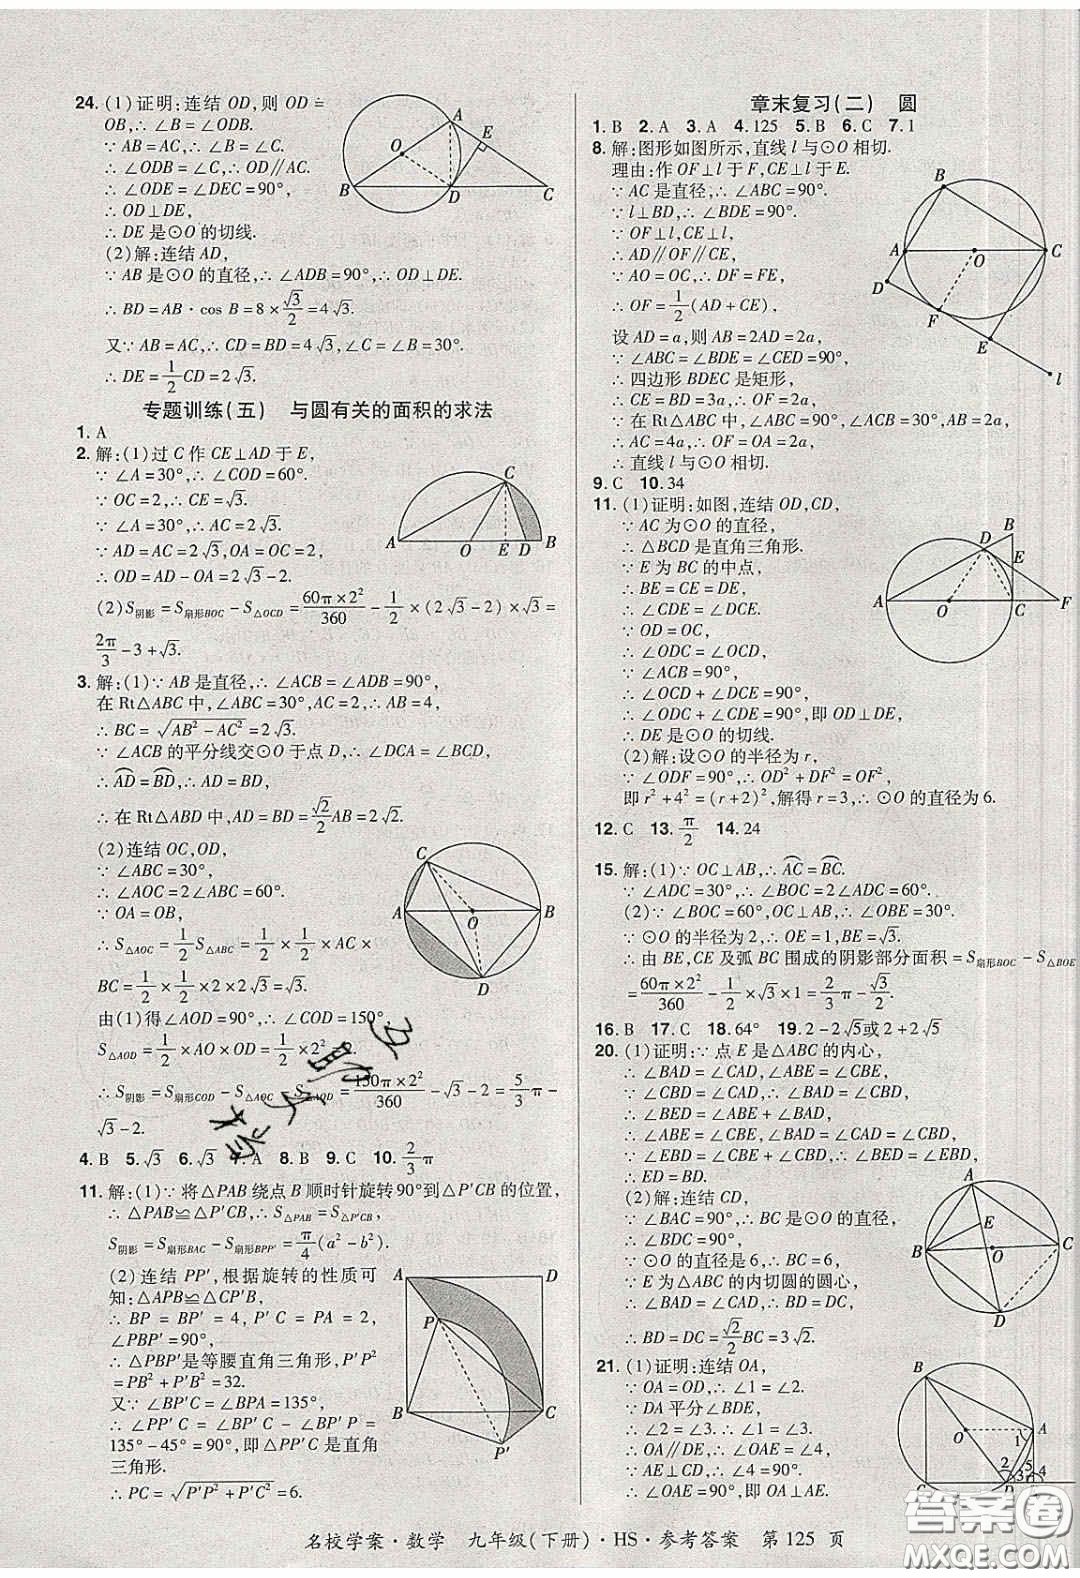 24. (1)证明:连结 OD,则 OD =
OB,∴ ∠B = ∠ODB.
∵ AB = AC,∴ ∠B = ∠C.
∴ ∠ODB = ∠C,∴ OD∥AC.
∴ ∠ODE = ∠DEC = 90°,
∴ OD⊥DE,
∴ DE 是⊙O 的切线.
(2)解:连结 AD,
∵ AB 是⊙O 的直径,∴ ∠ADB = 90°,∴ OD⊥DE.
∴ BD = AB · cos B = 8 × √3/2 = 4√3.
又∵ AB = AC,∴ CD = BD = 4√3,∴ ∠C = ∠B = 30°,
∴ DE = 1/2 CD = 2√3.
专题训练(五) 与圆有关的面积的求法
1. A
2. 解:(1)过 C 作 CE⊥AD 于 E,
∵ ∠A = 30°,∴ ∠COD = 60°.
∵ OC = 2,∴ CE = √3.
∵ ∠A = 30°,∴ AC = 2√3.
∵ AD = AC = 2√3,OA = OC = 2,
∴ OD = AD − OA = 2√3 − 2.
(2)S阴影 = S扇形BOC − S△OCD = 60π × 2²/360 − 1/2 × (2√3 − 2) × √3 =
2π/3 − 3 + √3.
3. 解:(1)∵ AB 是直径,∴ ∠ACB = ∠ADB = 90°,
在 Rt△ABC 中,∠ABC = 30°,AC = 2,∴ AB = 4,
∴ BC = √(AB² − AC²) = 2√3.
∵ ∠ACB 的平分线交⊙O 于点 D,∴ ∠DCA = ∠BCD,
∴ AD = BD,∴ AD = BD,
∴ 在 Rt△ABD 中,AD = BD = √2/2 AB = 2√2.
(2)连结 OC,OD,
∵ ∠ABC = 30°,
∴ ∠AOC = 2∠ABC = 60°.
∵ OA = OB,
∴ S△AOC = 1/2 S△ABC = 1/2 × 1/2 × AC ×
BC = 1/2 × 1/2 × 2 × 2√3 = √3.
由(1)得∠AOD = 90°,∴ ∠COD = 150°,
S△AOD = 1/2 × AO × OD = 1/2 × 2² = 2.
∴ S阴影 = S扇形COD − S△AOC − S△AOD = 150π × 2²/360 − √3 − 2 = 5/3 π −
√3 − 2.
4. B 5. √3 6. √3 7. A 8. B 9. C 10. 2/3 π
11. 解:(1)∵ 将△PAB 绕点 B 顺时针旋转90°到△P′CB 的位置,
∴ △PAB≌△P′CB,∴ S△PAB = S△P′CB,
S阴影 = S扇形BAC − S扇形BPP′ = π/4 (a² − b²).
(2)连结 PP′,根据旋转的性质可
知:△APB≌△CP′B,
∴ BP = BP′ = 4,P′C = PA = 2,
∠PBP′ = 90°,
∴ △PBP′是等腰直角三角形,P′P²
= PB² + P′B² = 32.
又∵ ∠BP′C = ∠BPA = 135°,
∴ ∠PP′C = ∠BP′C − ∠BP′P =
135° − 45° = 90°,即△PP′C 是直角
三角形.
∴ PC = √(P′P² + P′C²) = 6.
章末复习(二) 圆
1. B 2. A 3. A 4. 125 5. B 6. C 7. 1
8. 解:图形如图所示,直线 l 与⊙O 相切.
理由:作 OF⊥l 于 F,CE⊥l 于 E.
∵ AC 是直径,∴ ∠ABC = 90°.
∵ l⊥BD,∴ ∠BDE = 90°.
∵ OF⊥l,CE⊥l,
∴ AD∥OF∥CE.
∵ AO = OC,∴ DF = FE,
∴ OF = 1/2 (AD + CE),
设 AD = a,则 AB = 2AD = 2a,
∵ ∠ABC = ∠BDE = ∠CED = 90°,
∴ 四边形 BDEC 是矩形,
∴ CE = BD = 3a,∴ OF = 2a,
∵ 在 Rt△ABC 中,∠ABC = 90°,∠ACB = 30°,AB = 2a,
∴ AC = 4a,∴ OF = OA = 2a,
∴ 直线 l 与⊙O 相切.
9. C 10. 34
11. (1)证明:如图,连结 OD,CD,
∵ AC 为⊙O 的直径,
∴ △BCD 是直角三角形.
∵ E 为 BC 的中点,
∴ BE = CE = DE,
∴ ∠CDE = ∠DCE.
∵ OD = OC,
∴ ∠ODC = ∠OCD,
∵ ∠ACB = 90°,
∴ ∠OCD + ∠DCE = 90°,
∴ ∠ODC + ∠CDE = 90°,即 OD⊥DE,
∴ DE 是⊙O 的切线.
(2)解:设⊙O 的半径为 r,
∵ ∠ODF = 90°,∴ OD² + DF² = OF²,
即 r² + 4² = (r + 2)²,解得 r = 3,∴ ⊙O 的直径为 6.
12. C 13. π/2 14. 24
15. 解:(1)∵ OC⊥AB,∴ AC = BC.
∵ ∠ADC = 30°,∴ ∠BOC = 2∠ADC = 60°.
(2)∵ ∠BOC = 60°,OC⊥AB,∴ ∠OBE = 30°.
∵ ⊙O 的半径为 2,∴ OE = 1,BE = √3.
∴ 由 BE,CE 及弧 BC 围成的阴影部分面积 = S扇形BOC − S△BOE
= 60π × 2²/360 − 1/2 × √3 × 1 = 2π/3 − √3/2.
16. B 17. C 18. 64° 19. 2 − 2√5或 2 + 2√5
20. (1)证明:∵ 点 E 是△ABC 的内心,
∴ ∠BAD = ∠CAD,∠ABE = ∠CBE,
∵ ∠CBD = ∠CAD,∴ ∠BAD = ∠CBD,
∴ ∠BED = ∠ABE + ∠BAD,
∴ ∠ABE = ∠CBE,∠BAD = ∠CAD = ∠CBD,
∵ ∠EBD = ∠CBE + ∠CBD,∴ ∠BED = ∠EBD
∴ ED = BD.
(2)解:连结 CD,
∵ ∠BAC = 90°,∴ BC 是⊙O 的直径,
∴ ∠BDC = 90°.
∵ ⊙O 的直径是 6,∴ BC = 6.
∵ E 为△ABC 的内切圆的圆心,
∴ ∠BAD = ∠CAD,∴ BD = DC,
∴ BD = DC = √2/2 BC = 3√2.
21. (1)证明:连结 OA,
∵ OA = OD,∴ ∠1 = ∠2.
∵ DA 平分∠BDE,
∴ ∠2 = ∠3,∴ ∠1 = ∠3,
∴ OA∥DE,∴ ∠OAE = ∠4,
∵ AE⊥CD,∴ ∠4 = 90°,
∴ ∠OAE = 90°,
名校学案·数学 九年级(下册)·HS·参考答案 第 125 页
答案圈
MXQE.COM